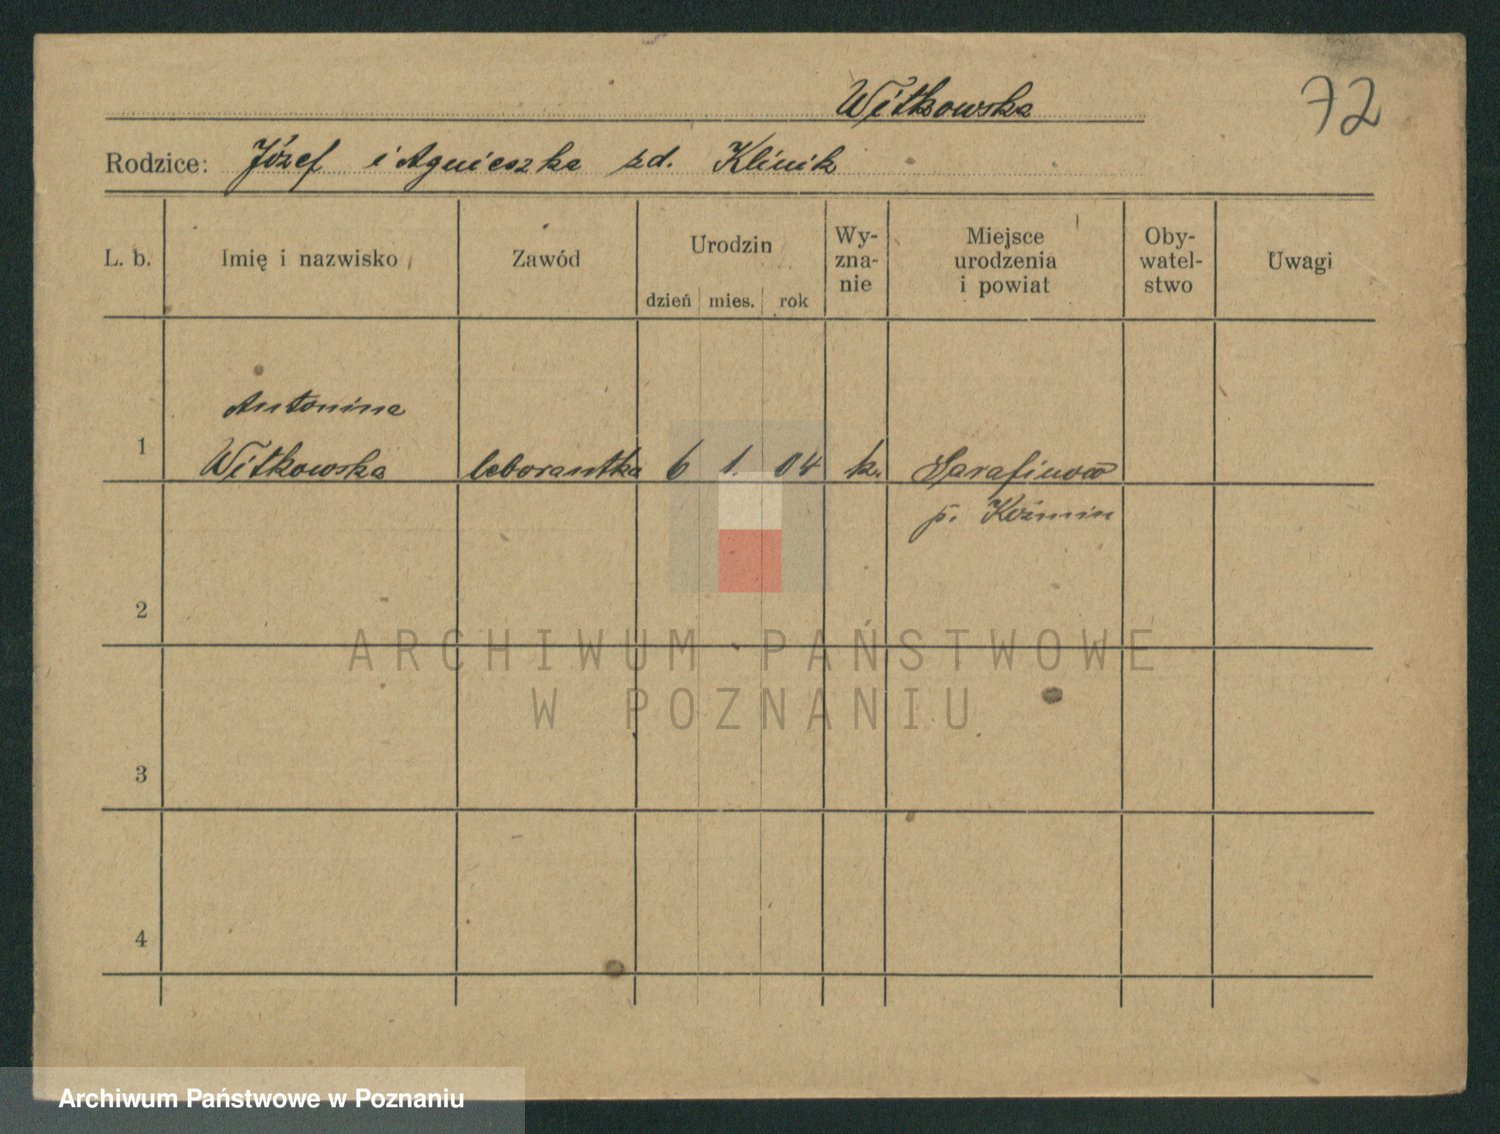 Witkowska
72
Rodzice: Józef i Agnieszka zd. Klinik
L. b. Imię i nazwisko Zawód Urodzin Wy-zna-nie Miejsce urodzenia i powiat Oby-watel-stwo Uwagi
dzień mies. rok
Antonina
1 Witkowska laborantka 6 1. 04 k. Serafinów
p. Koźmin
2
ARCHIWUM PAŃSTWOWE
W POZNANIU
3
4
Archiwum Państwowe w Poznaniu